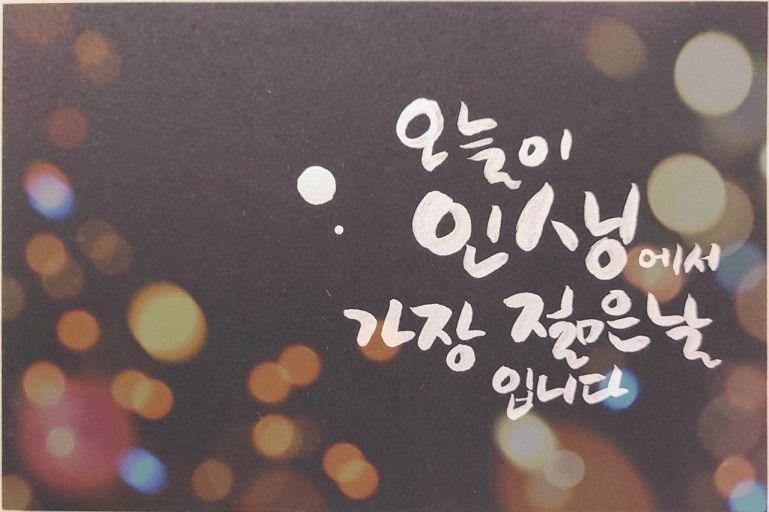 오늘이
인생에서
가장 젊은날
입니다